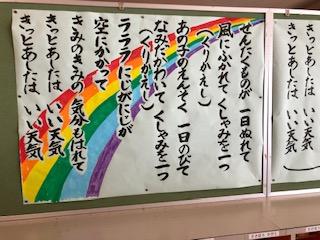 きっとあしたは いい天気)
きっとあしたは いい天気
せんたくものが 一日ぬれて
風にふかれて くしゃみを一つ
(くりかえし)
あの子のえんそく 一日のびて
なみだかわいて くしゃみを一つ
(くりかえし)
ラララ にじがにじが
空にかかって
きみのきみの 気分もはれて
きっとあしたは いい天気
きっとあしたは いい天気